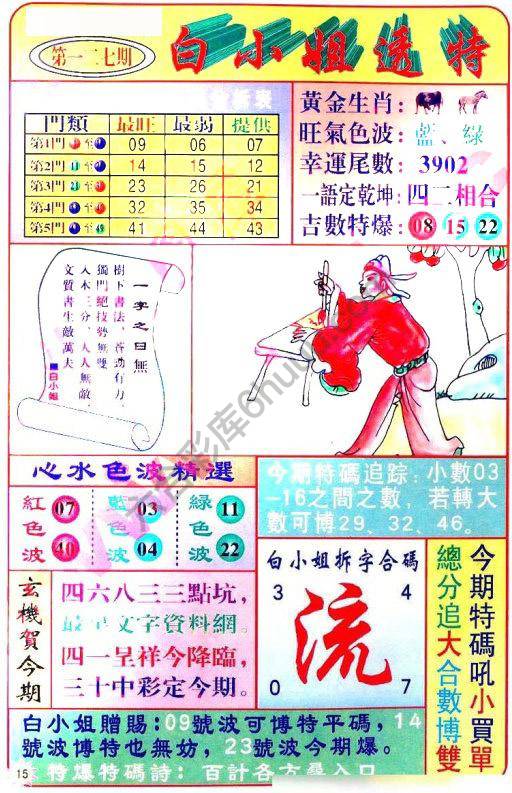 第一二七期
白小姐透特
門類 最旺 最弱 提供
第1門 至 09 06 07
第2門 至 14 15 12
第3門 至 23 26 21
第4門 至 32 35 34
第5門 至 49 41 44 43
黃金生肖:
旺氣色波:藍、綠
幸運尾數:3902
一語定乾坤:四二相合
吉數特爆:08 15 22
一字之曰無
樹下書法,蒼勁有力,
獨門絕技勢無雙
入木三分,人人無敵,
文質書生敵萬夫
白小姐
心水色波精選
紅色波 07 40
藍色波 03 04
綠色波 11 22
今期特碼追踪:小數03
-16之間之數,若轉大
數可博29、32、46。
玄機賀今期
四六八三三點坑,
最準文字資料網。
四一呈祥今降臨,
三十中彩定今期。
白小姐拆字合碼
3 4
流
0 7
今期特碼吼小買單
總分追大合數博雙
白小姐贈賜:09號波可博特平碼,14
號波博特也無妨,23號波今期爆。
特爆特碼詩:百計各方尋入口
15
六合彩库6huck.com